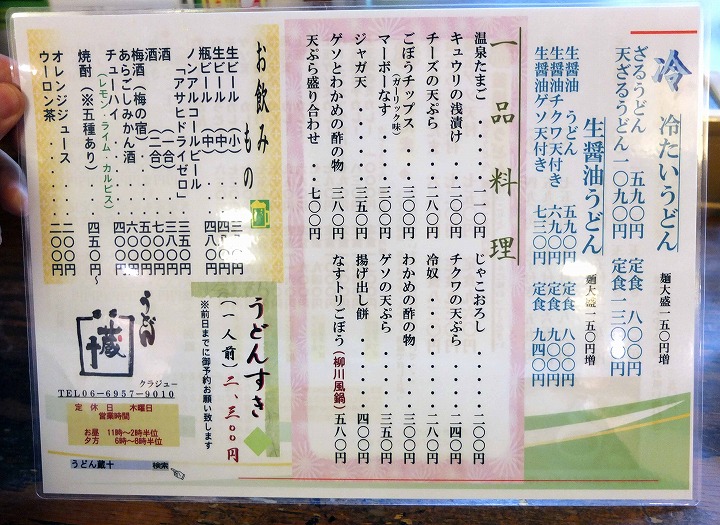 冷 冷たいうどん 麺大盛一五〇円増
ざるうどん 五九〇円 定食 八〇〇円
天ざるうどん 一〇九〇円 定食 一三〇〇円
生醤油うどん 麺大盛一五〇円増
生醤油 うどん 五九〇円 定食 八〇〇円
生醤油チクワ天付き 六九〇円 定食 九〇〇円
生醤油ゲソ天付き 七三〇円 定食 九四〇円
一品料理
温泉たまご・・・・一一〇円
キュウリの浅漬け・・二〇〇円
チーズの天ぷら・・・二八〇円
ごぼうチップス(ガーリック味)・・三〇〇円
マーボーなす・・・・
ジャガ天・・・・・三五〇円
ゲソとわかめの酢の物・三八〇円
天ぷら盛り合わせ・・七〇〇円
じゃこおろし・・・・二〇〇円
チクワの天ぷら・・・二四〇円
冷奴・・・・・・二八〇円
わかめの酢の物・・・
ゲソの天ぷら・・・・三五〇円
揚げ出し餅・・・・四〇〇円
なすトリごぼう(柳川風鍋)五八〇円
お飲みもの
生ビール (小)
生ビール (中)
瓶ビール (中) 四八〇円
ノンアルコールビール
「アサヒドライゼロ」 三五〇円
酒 三八〇円
酒 (二合) 七〇〇円
梅酒(梅の宿)
あらごしみかん酒 六〇〇円
チューハイ 四〇〇円
(レモン・ライム・カルピス)
焼酎(※五種あり) 四五〇円〜
オレンジジュース 二〇〇円
ウーロン茶 二〇〇円
うどんすき
(一人前) 二、三〇〇円
※前日までに御予約お願い致します
うどん
蔵十
クラジュー
TEL06-6957-9010
定 休 日 木曜日
営業時間
お昼 11時〜2時半位
夕方 6時〜8時半位
うどん蔵十 検索